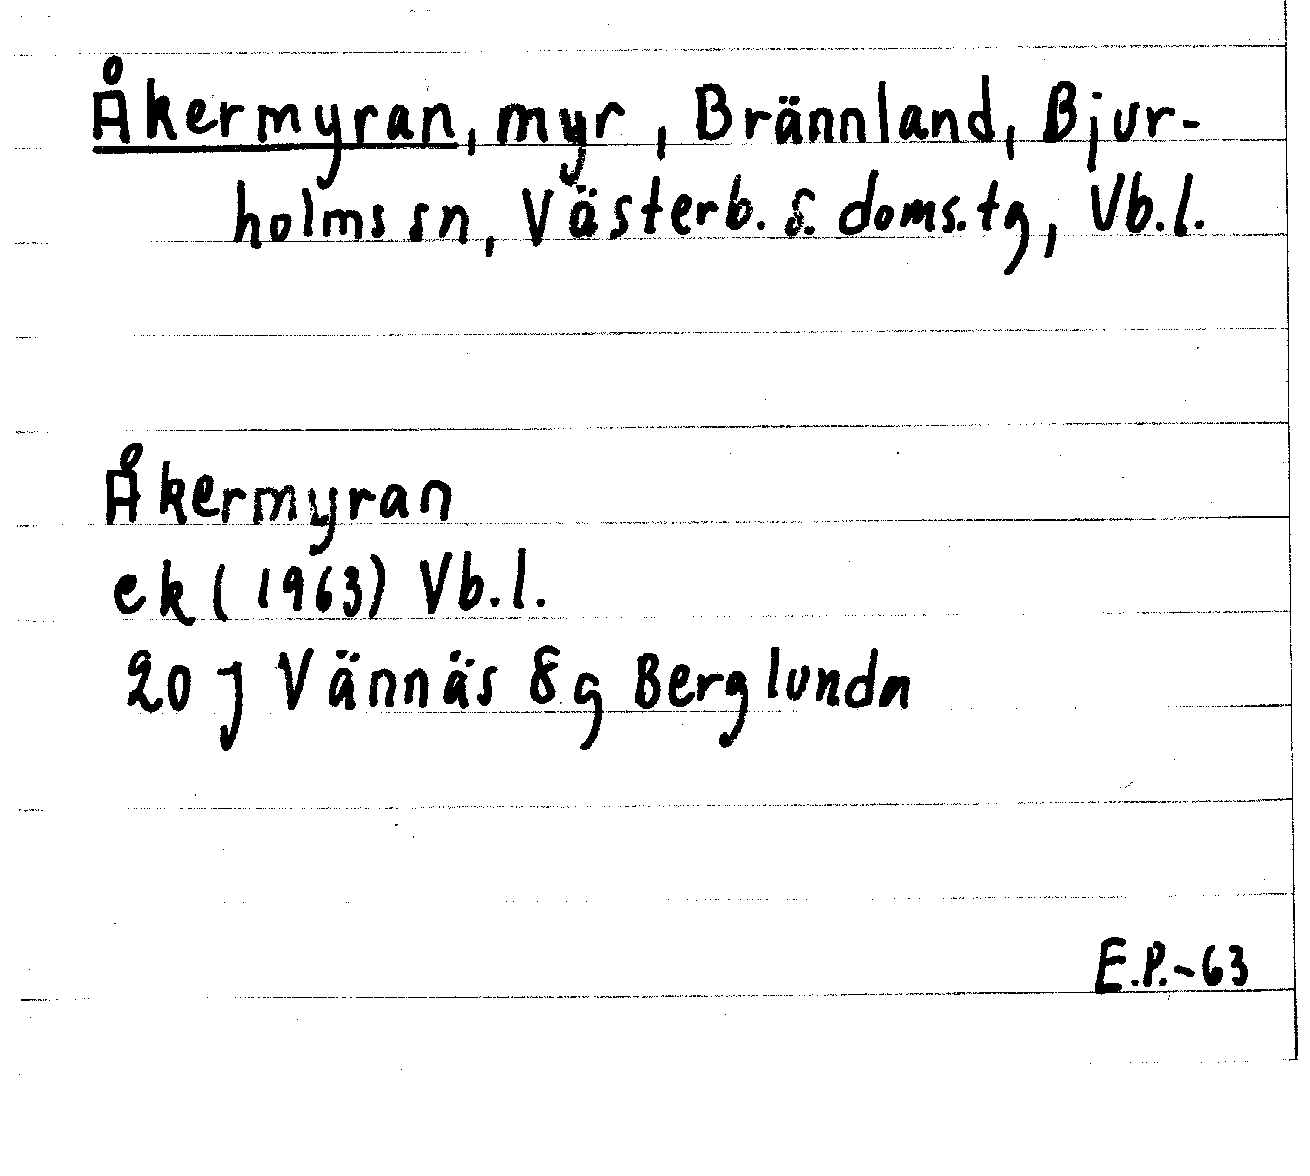 Åkermyran, myr, Brännland, Bjur-
holms sn, Västerb. s. doms.tg, Vb.l.
Åkermyran
ek (1963) Vb.l.
20 J Vännäs 8 g Berglunda
E.P.-63